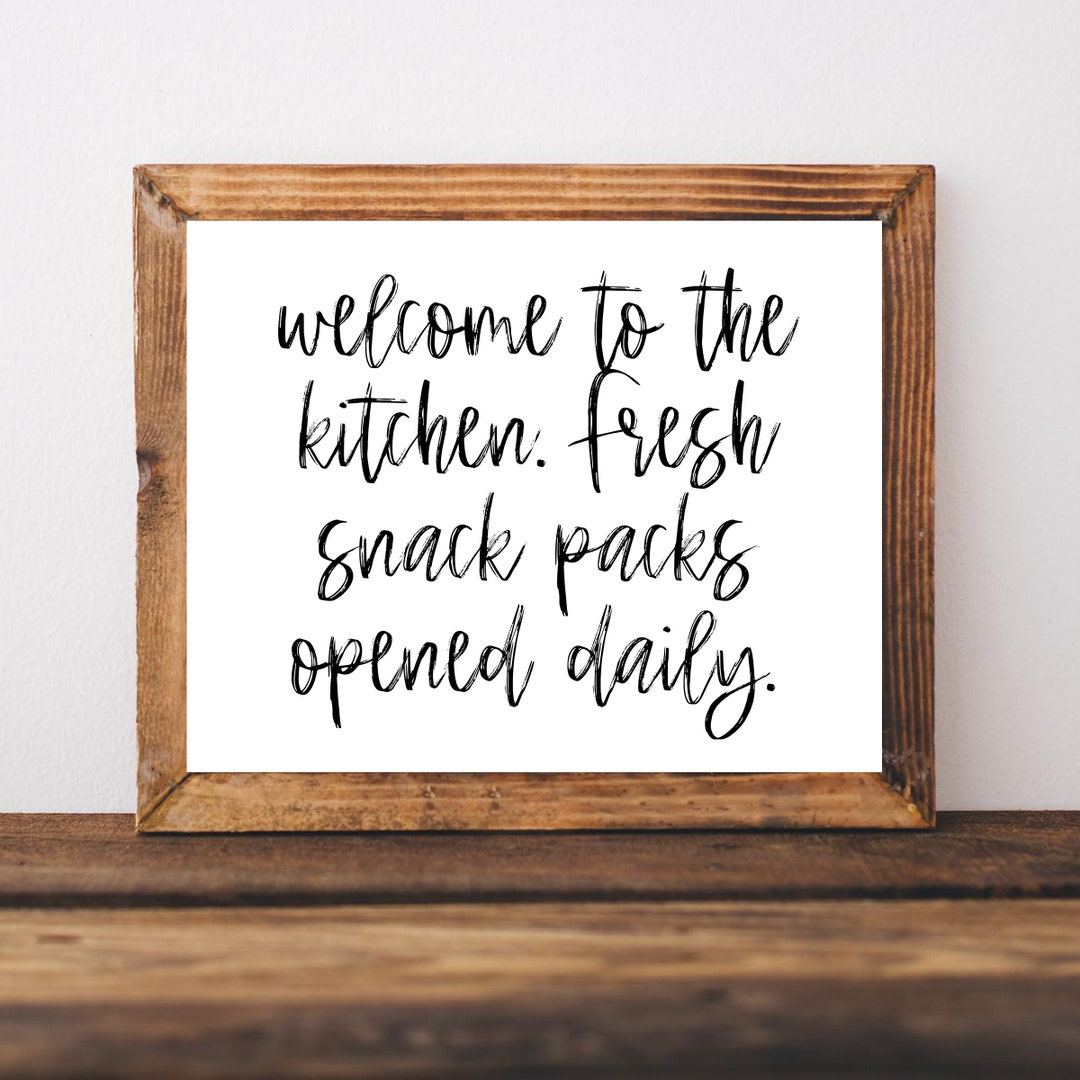 welcome to the
kitchen. fresh
snack packs
opened daily.